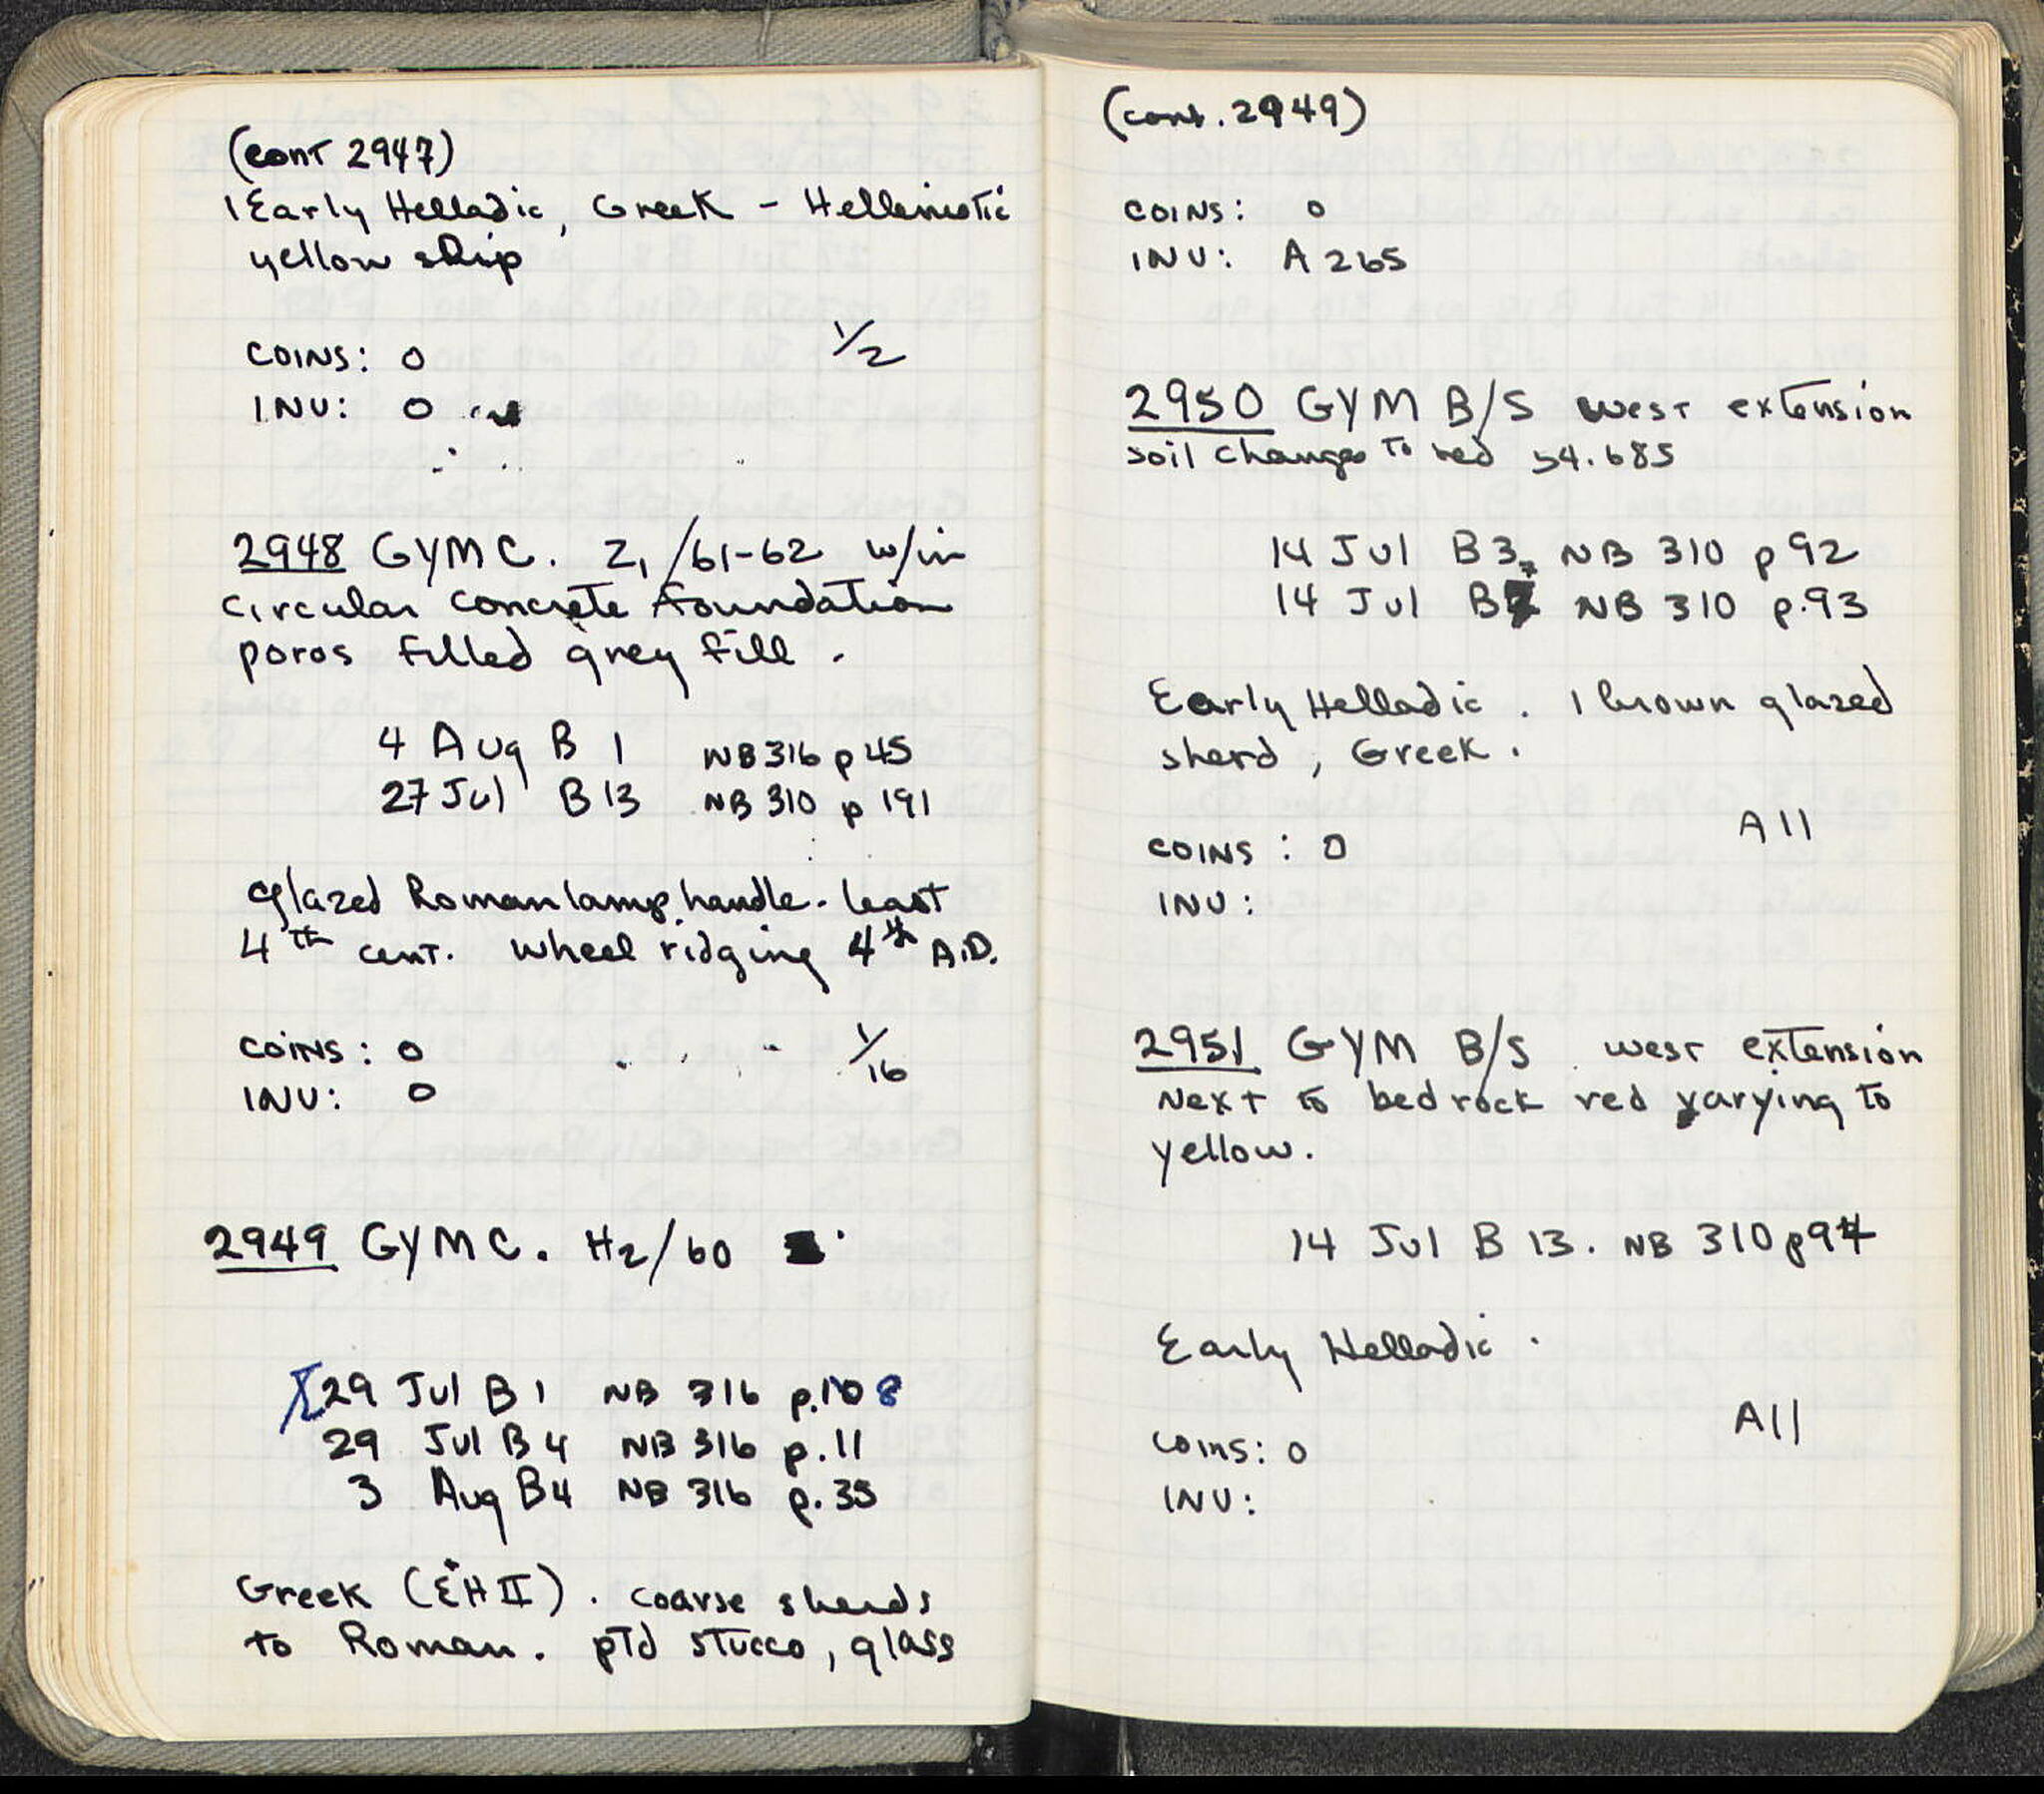 (cont 2947)
1 Early Helladic, Greek - Hellenistic
yellow slip
COINS: 0 1/2
INV: 0
2948 GYM C. Z1/61-62 w/in
circular concrete foundation
poros filled grey fill.
4 Aug B 1 NB 316 p 45
27 Jul B 13 NB 310 p 191
glazed Roman lamp handle. least
4th cent. wheel ridging 4th A.D.
COINS: 0 1/16
INV: 0
2949 GYM C. H2/60
29 Jul B 1 NB 316 p.108
29 Jul B 4 NB 316 p.11
3 Aug B4 NB 316 p.35
Greek (EH II). coarse sherds
to Roman. ptd stucco, glass
(cont. 2949)
COINS: 0
INV: A 265
2950 GYM B/S west extension
soil changes to red 54.685
14 Jul B 3 NB 310 p 92
14 Jul B NB 310 p.93
Early Helladic. 1 brown glazed
sherd, Greek.
All
COINS: 0
INV:
2951 GYM B/S west extension
Next to bedrock red varying to
yellow.
14 Jul B 13. NB 310 p94
Early Helladic.
All
COINS: 0
INV: